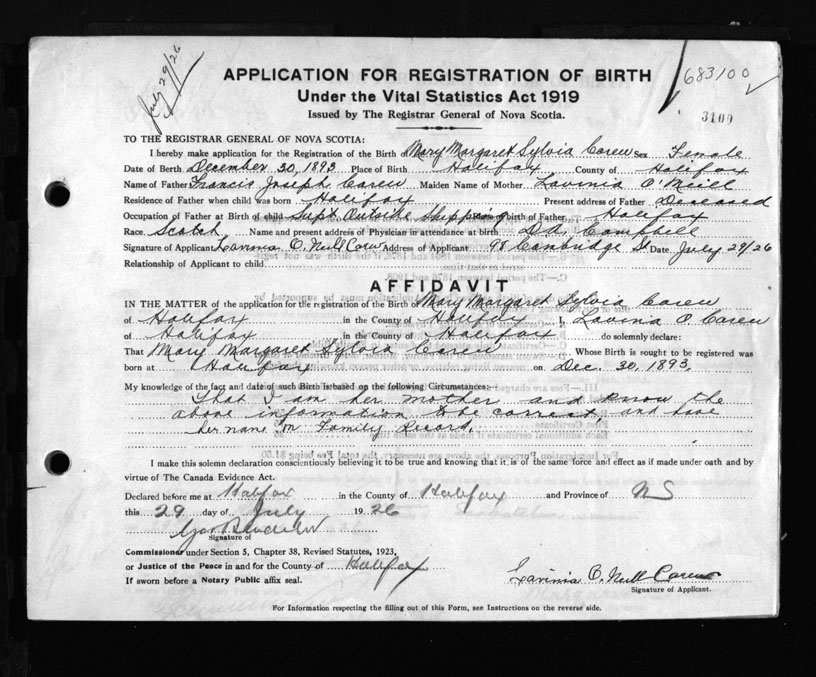 July 29/26
683100
3109
APPLICATION FOR REGISTRATION OF BIRTH
Under the Vital Statistics Act 1919
Issued by The Registrar General of Nova Scotia.
TO THE REGISTRAR GENERAL OF NOVA SCOTIA:
I hereby make application for the Registration of the Birth of Mary Margaret Sylvia Carew Sex Female
Date of Birth December 30, 1893 Place of Birth Halifax County of Halifax
Name of Father Francis Joseph Carew Maiden Name of Mother Lavinia O'Neill
Residence of Father when child was born Halifax Present address of Father Deceased
Occupation of Father at Birth of child Supt Outside Shipping Birth of Father Halifax
Race. Scotch Name and present address of Physician in attendance at birth Dr. Campbell
Signature of Applicant Lavinia O. Neill Carew Address of Applicant 98 Cambridge St Date July 29/26
Relationship of Applicant to child
AFFIDAVIT
IN THE MATTER of the application for the registration of the Birth of Mary Margaret Sylvia Carew
of Halifax in the County of Halifax I, Lavinia O. Carew
of Halifax in the County of Halifax do solemnly declare:
That Mary Margaret Sylvia Carew Whose Birth is sought to be registered was
born at Halifax on Dec. 30, 1893,
My knowledge of the fact and date of such Birth is based on the following Circumstances:
That I am her mother and know the
above information to be correct, and have
her name in Family Record.
I make this solemn declaration conscientiously believing it to be true and knowing that it is of the same force and effect as if made under oath and by
virtue of The Canada Evidence Act.
Declared before me at Halifax in the County of Halifax and Province of N S
this 29 day of July 1926
Signature of
Commissioner under Section 5, Chapter 38, Revised Statutes, 1923,
or Justice of the Peace in and for the County of Halifax
If sworn before a Notary Public affix seal.
Lavinia O. Neill Carew
Signature of Applicant.
For Information respecting the filling out of this Form, see Instructions on the reverse side.